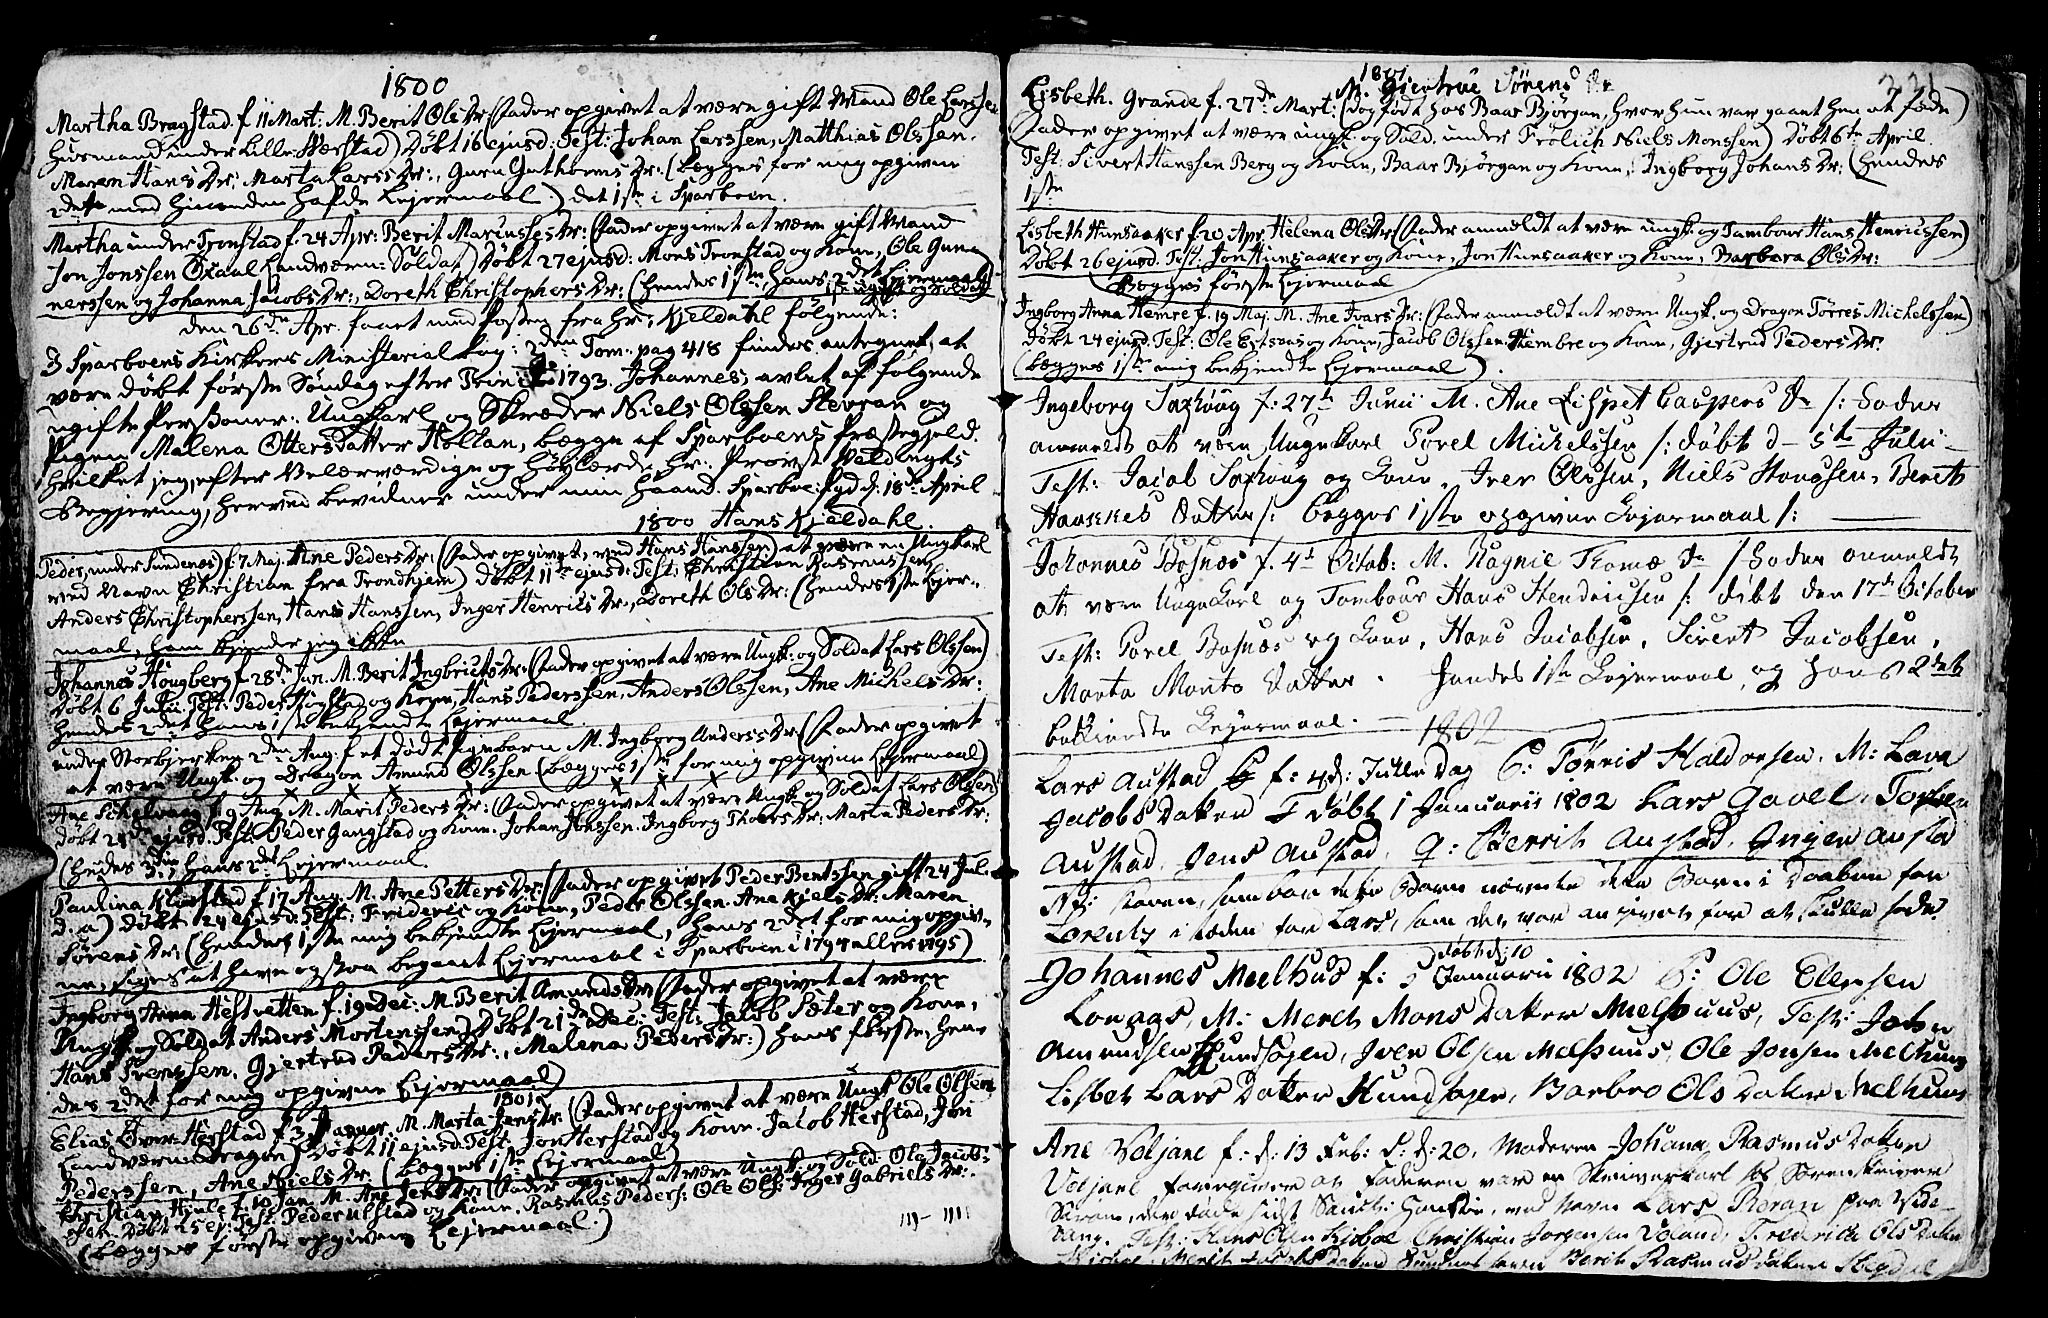 1800
Martha Bragstad. f. 11 Mart: M. Berit Ole Dr: (Fader opgivet at være gift Mand Ole Larssen
Huusmand under Lille Værstad) Døbt 16 ejusd: Test: Johan Larssen, Matthias Olssen.
Maren Hans Dr:, Marta Larss Dr:, Guru Guthorms Dr: (begges for mig opgivne
2det med hinanden hafde Lejermaal) det 1ste i Sparboen.
Martha under Tronstad f. 24 Apr: Berit Mariusses Dr: (Fader opgivet at være gift Mand
Jon Jonssen Oxaal Landværn: Soldat) Døbt 27 ejusd: Mons Tronstad og Kone, Ole Gun
nerssen og Johanna Jacobs Dr:, Doreth Christophers Dr: (hendes 1ste, hans 2det Lejermaal)
den 26de Apr. faaet med Posten fra Hr: Kjeldahl følgende:
I Sparboens Kirkers Ministerial bog: 2den Tom: pag 418 findes antegnet, at
være døbt første Søndag efter Trinit: 1793. Johannes, avlet af følgende
ugifte Personer: Ungkarl og Skræder Niels Olssen Stevran og
Pigen Malena Ottersdatter Hollan, begge af Sparboens Præstegjeld.
Hvilket jeg, efter Velærværdige og Høylærde Hr: Provst Weldings
Begjering, herved bevidner under min Haand. Sparboe: Pgd d: 18de April
1800 Hans Kjeldahl.
Peder, under Sundenæs) f. 7 Maj. Ane Peders Dr: (Fader opgivet, ved Hans Hanssen) at være en Ungkarl
ved Navn Christian fra Trondhjem) Døbt 11te ejusd: Test: Christian
Anders Christopherssen, Hans Hanssen, Inger Henrics Dr:, Doreth Ols Dr: (hendes 1ste Lejer-
maal, ham kjender jeg ikke
Johannes Hougberg f. 28de Jun. M. Berit Ingbricts Dr: (Fader opgivet at være Ungk: og Soldat Lars Olssen)
Døbt 6 Julii. Test: Peder og Kone, Hans Pederssen, Anders Olssen, Ane Michels Dr:
hendes 2det hans 1ste bekjendte Lejermaal.
under Storbjerken 2den Aug. f. et dødt Pigebarn M. Ingborg Anders Dr: (Fader opgivet
at være Ungk: og Dragon Amund Olssen (begges 1ste for mig opgivne Lejermaal)
Ane f. 9 Aug. M. Marit Peders Dr: (Fader opgivet at være Ungk: og Soldat Lars Olssen)
Døbt 24 ejusd. Test: Peder Gangstad og Kone. Johan Jonssen. Ingborg Thores Dr: Maria Peders Dr:
(hendes 3die, hans 2det Lejermaal.
Paulina f. 17 Aug. M. Ane Petters Dr: (Fader opgivet Peder Bentssen gift 24 Jul:
d: a) Døbt 24 ejusd: Test: Frideric og Kone, Peder Olssen. Ane Kjels Dr: Maren
Sørens Dr: (hendes 1ste mig bekjendte Lejermaal, hans 2det for mig opgiv-
ne, siges at have ogsaa begaaet Lejermaal i Sparboen i 1794 aller 1795)
Ingborg Anna Hestvetten f. 19 Dec: M. Berit Amunds Dr: (Fader opgivet at være
Ungk: og Soldat Anders Mortenssen) Døbt 21 Dec: Test: Jacob Sæter og Kone,
Hans Frenssen, Gjertrud Peders Dr:, Malena Peders Dr:) hans første, hen-
des 2det for mig opgivne Lejermaal)
1801
Elias Over: Herstad f. 3 Januar, M. Marta Jens Dr: (Fader opgivet at være Ungk Ole Olssen
Landværns Dragon) Døbt 11 ejusd: Test: Jon Herstad og Kone. Jacob Herstad, Jon
Pederssen, Ane Niels Dr: (begges 1ste Lejermaal)
Christian Hjule f. 10 Jan. M. Ane Jens Dr: (Fader opgivet at være Ungk: og Sold: Ole Jacob-
ssen. Døbt 25 ej: Test: Peder Ulstad og Kone, Rasmus Peders: Ole Ols: Inger Gabriels Dr:
(begges første opgivne Lejermaal.)
1801
221
M. Giertrue Sørens Dr
Lisbeth. Grande f. 27de Mart: (dog født hos Baar Bjørgan, hvor hun var gaaet hen at føde)
Fader opgivet at være ungk: og Sold. under Frølich Niels Monssen) Døbt 6te April
Test: Sivert Hanssen Berg og Kone, Baar Bjørgan og Kone, Ingborg Johans Dr: (hendes
1ste
Lisbeth Hunsaaker f. 20 Apr Helena Ols Dr: (Fader anmeldt at være ungk: og Tambour Hans Henricssen)
Døbt 26 ejusd. Test: Jon Hunsaaker og Kone, Jon Hunsaaker og Kone, Barbara Ols Dr:
(Begges første Lejermaal
Ingborg Anna Hemre f. 19 Maj. M. Ane Ivars Dr: (Fader anmeldt at være Ungk. og Dragon Tørres Michelssen)
Døbt 24 ejusd. Test: Ole og Kone, Jacob Olssen Hembre og Kone, Gjertrud Peders Dr:
(begges 1ste mig bekjendte Lejermaal).
Ingeborg Saxhoug f: 27de Junii M. Ane Lispet Caspers Dr /: Fader
anmeldt at være Ungekarl Porel Michelssen /: døbt d– 5te Julii –
Test: Jacob Saxhoug og Kone, Iver Olssen, Niels Hanssen, Berith
Haaches Datter /: begges 1ste opgivne Lejermaal /:
Johannes Bosnæs f. 4de Octob: M. Ragnie Thomæ Dr /: Fader anmeldt
at være Ungekarl og Tambour Hans Hendrichsen /: døbt den 17de October
Test: Porel Bosnæs og Kone, Hans Jacobsen, Sivert Jacobsen,
Marta Monts Datter. Hendes 1ste Lejermaal, og hans 2det
bekiendte Lejermaal. –
1802
Lars Austad f: 4 d: Julle Dag P: Tønnis Haldorsen, M: Lava
Jacobs Datter døbt 1 Januarii 1802 Lars Gavel, Torsten
Austad, Jens Austad, q: Berrith Austad, Ingen Austad
NB: Konen, som bar dette Barn nævnte dette Barn i Daaben for
Lorentz i stæden for Lars, som det var angivet for at skulle hede.
døbt d: 10
Johannes Meelhus f: 5 Januarii 1802 P: Ole Ellensen
Longaas, M: Mereth Mons Datter Melhuus, Test: John
Amundsen Hundsagen, Iver Olsen Melhuus, Ole Jonsen Melhuus
Lisbet Lars Datter Hundsagen, Barbro Ols Datter Melhuus
Ane Voljane f: d: 13 Feb: d: d: 20, Moderen Johana Rasmus Datter
Voljane foregivere at Faderen var en Skriverkarl hos Sorenskriver
Strøm, der døde sidst Sancti Hanstie, ved Navn Lars Roran paa Vide-
vang. Test: Hans Olsen Christian Jørgensen Voland, Fredrica Ols Datter
Berith Rasmusdatter